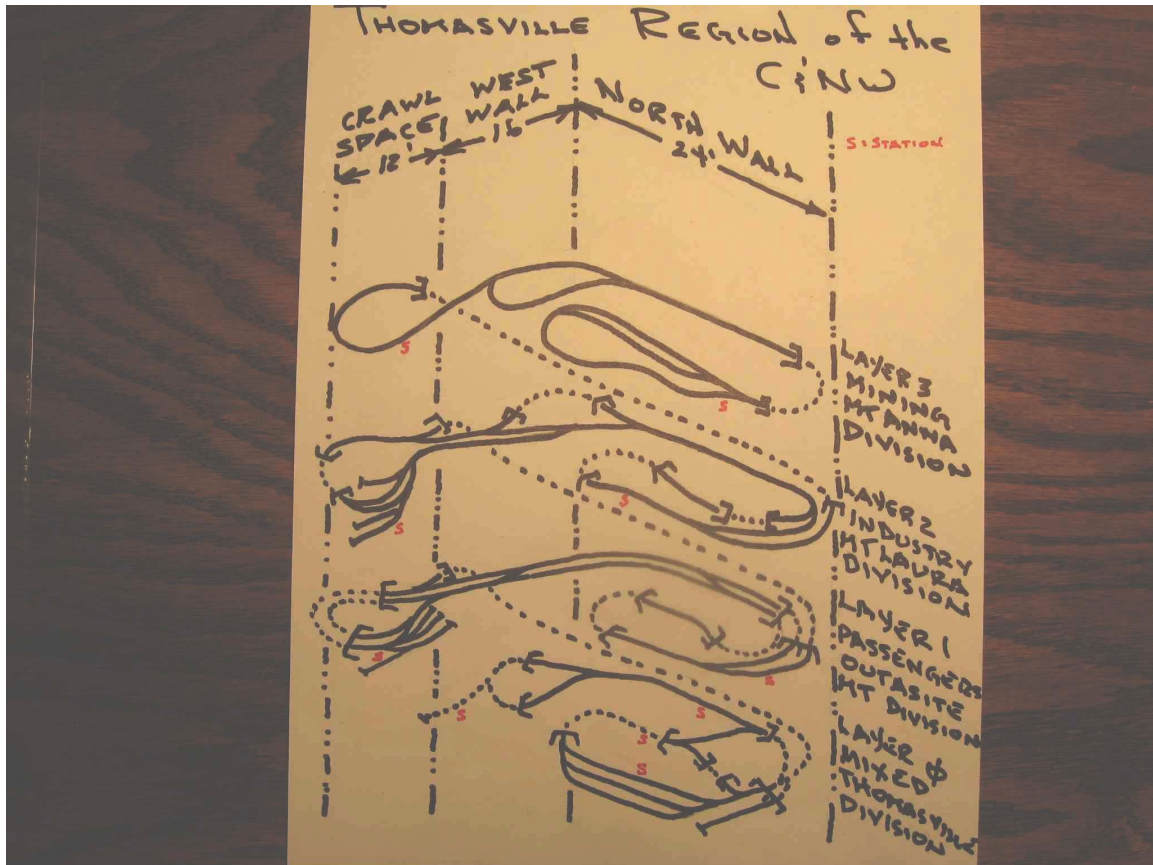 THOMASVILLE REGION of the
C&NW
CRAWL
SPACE
12'
WEST
WALL
16
NORTH WALL
24'
S:STATION
S
S
LAYER 3
MINING
MT ANNA
DIVISION
S
S
LAYER 2
INDUSTRY
MT LAURA
DIVISION
S
S
LAYER 1
PASSENGERS
OUTASITE
MT DIVISION
S
S
S
S
LAYER φ
MIXED
THOMASVILLE
DIVISION